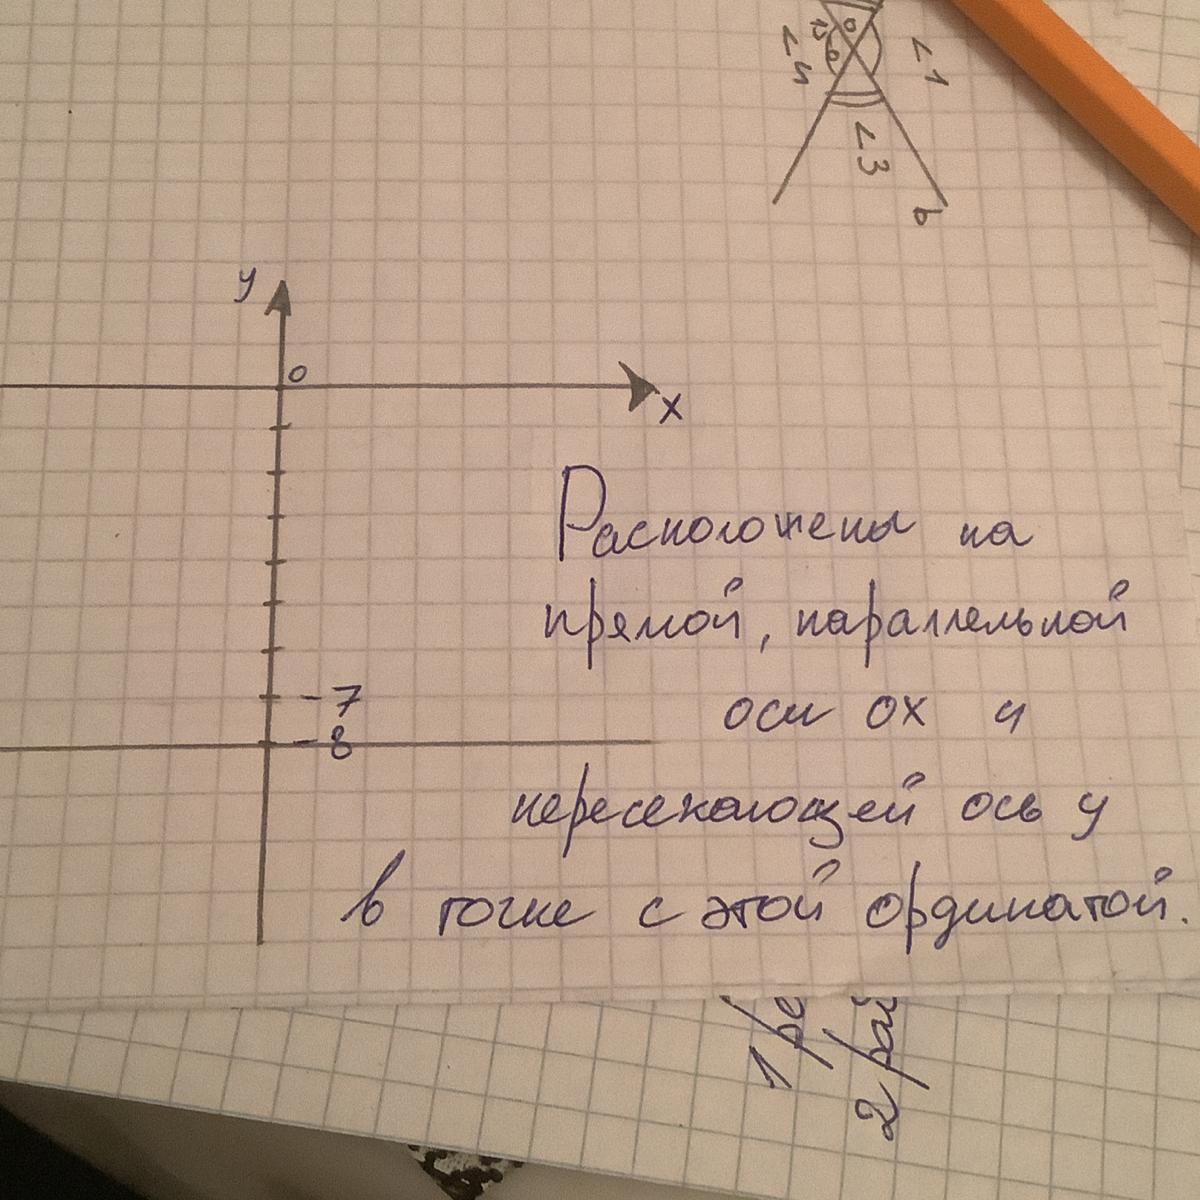 ∠1
∠4
∠3
b
y
0
x
Расположены на
прямой, параллельной
-7
оси ох и
-8
пересекающей ось у
в точке с этой ординатой.
1
2